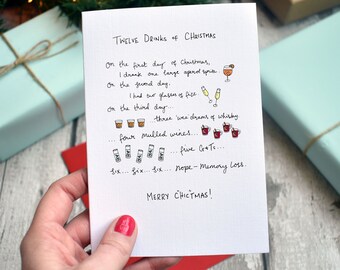 TWELVE DRINKS OF CHRISTMAS
On the first day of Christmas,
I drank one large aperol spritz.
On the second day,
I had two glasses of fizz.
On the third day...
three 'wee drams of whisky
...four mulled wines...
...five G&Ts...
Six... Six... Six... nope-Memory Loss.
MERRY CHIC*TMAS!